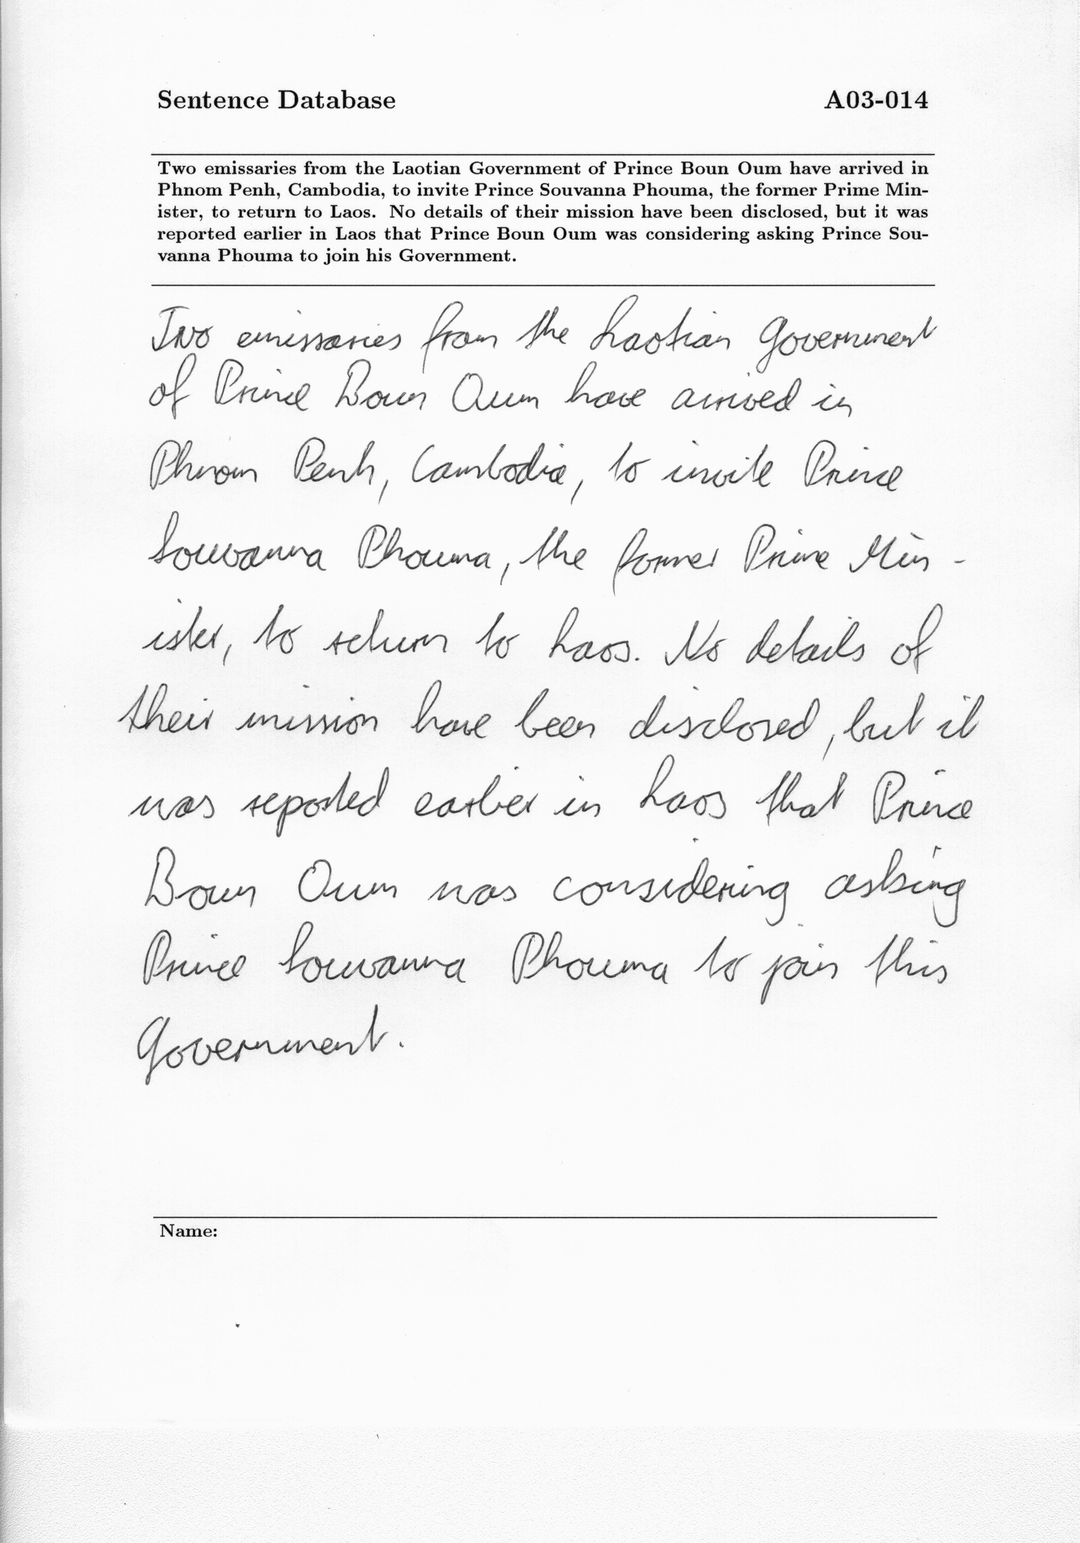 Sentence Database A03-014
Two emissaries from the Laotian Government of Prince Boun Oum have arrived in
Phnom Penh, Cambodia, to invite Prince Souvanna Phouma, the former Prime Min-
ister, to return to Laos. No details of their mission have been disclosed, but it was
reported earlier in Laos that Prince Boun Oum was considering asking Prince Sou-
vanna Phouma to join his Government.
Two emissaries from the Laotian Government
of Prince Boun Oum have arrived in
Phnom Penh, Cambodia, to invite Prince
Souvanna Phouma, the former Prime Min-
ister, to return to Laos. No details of
their mission have been disclosed, but it
was reported earlier in Laos that Prince
Boun Oum was considering asking
Prince Souvanna Phouma to join this
Government.
Name: